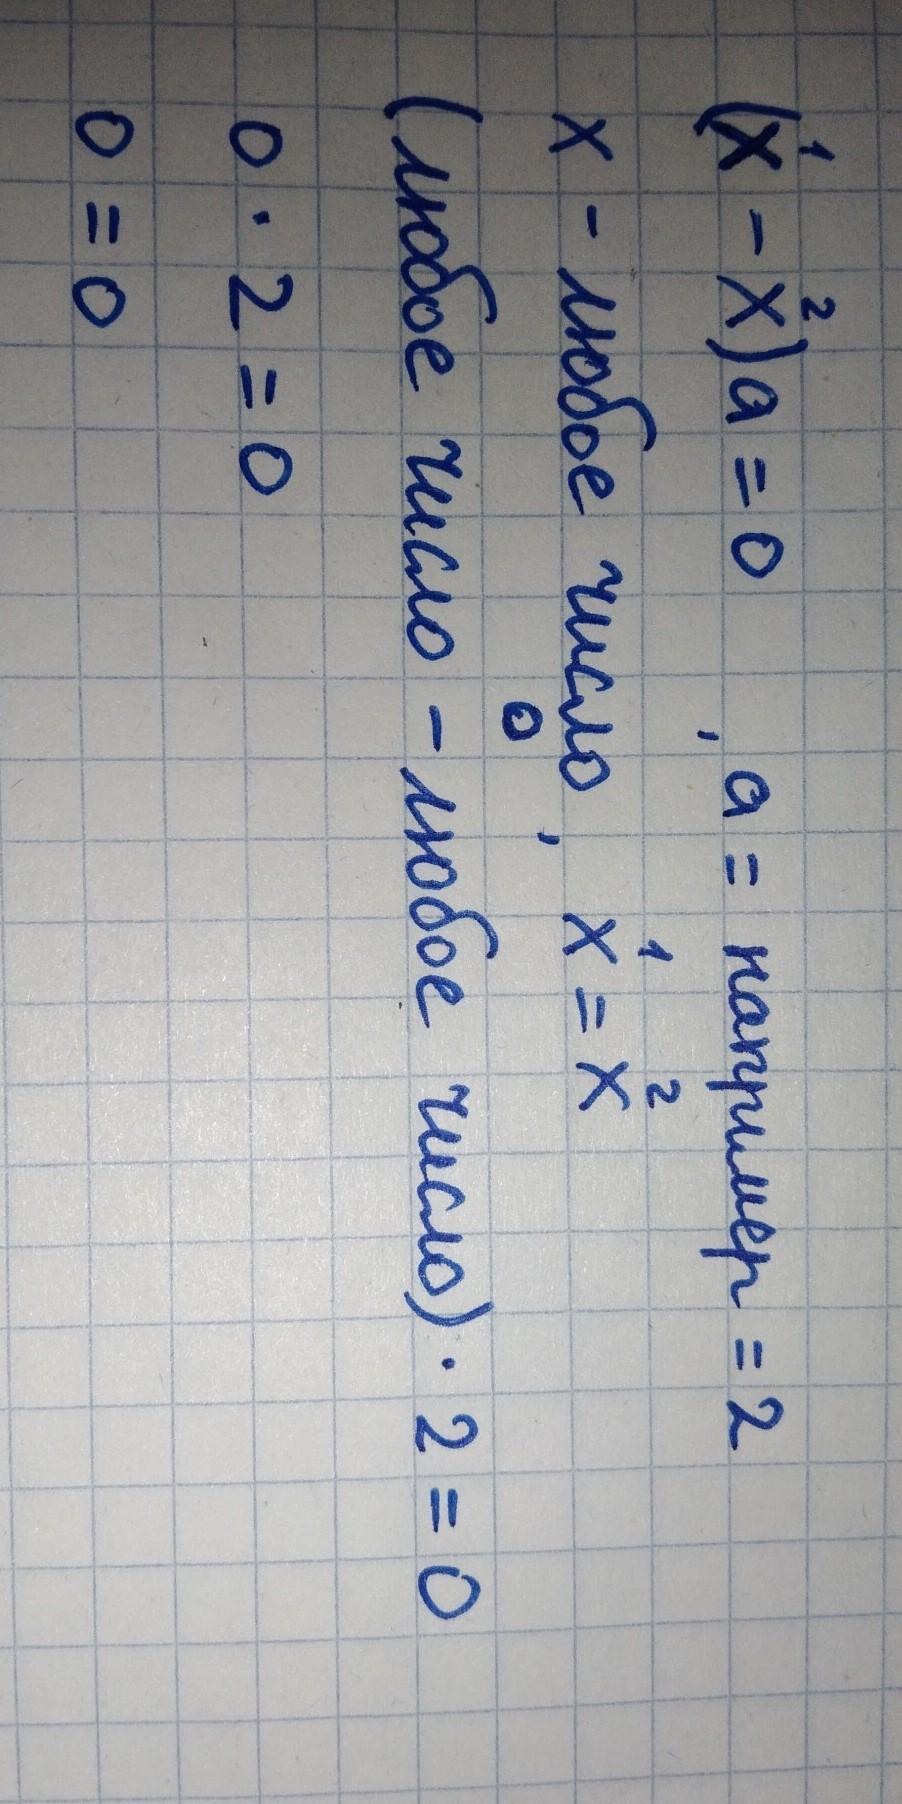 (x¹ - x²)a = 0 , a = например = 2
x - любое число, x¹ = x²
0
(любое число - любое число) · 2 = 0
0 · 2 = 0
0 = 0